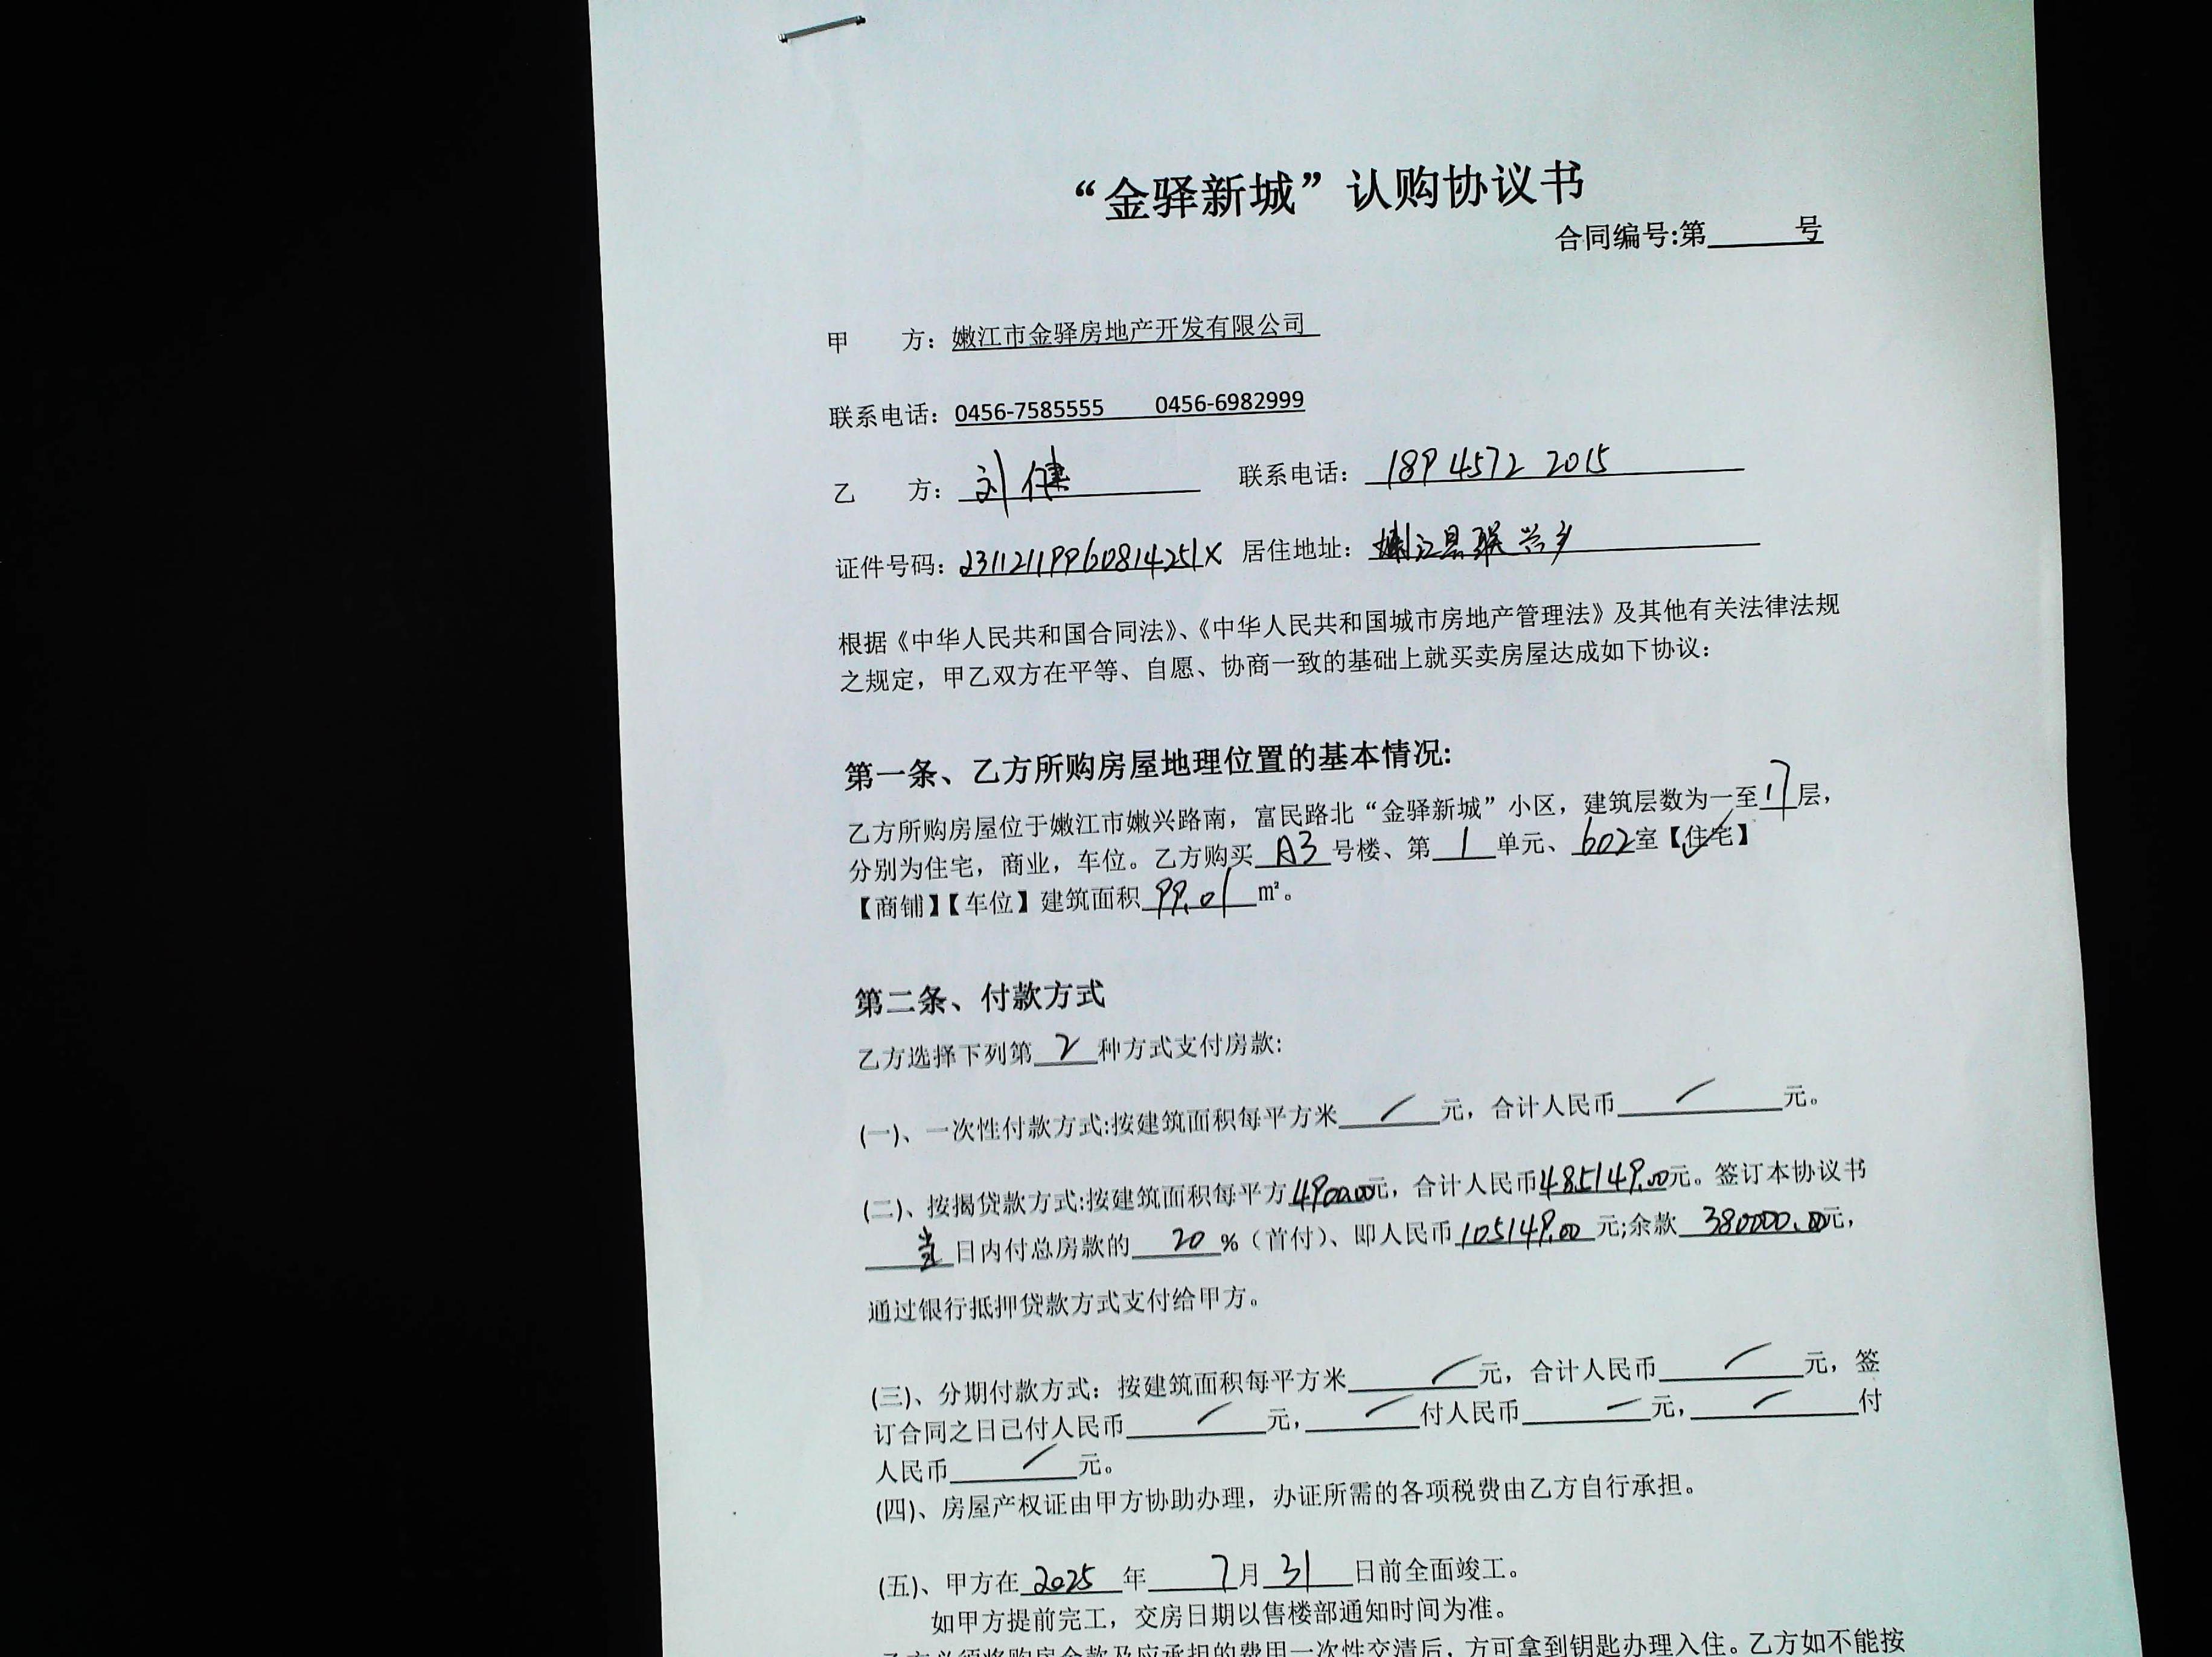 “金驿新城”认购协议书
合同编号:第______号
甲　　方：嫩江市金驿房地产开发有限公司
联系电话：0456-7585555　　0456-6982999
乙　　方：刘健　　联系电话：189 4572 2015
证件号码：23112119960814251X 居住地址：嫩江县联兴乡
根据《中华人民共和国合同法》、《中华人民共和国城市房地产管理法》及其他有关法律法规
之规定，甲乙双方在平等、自愿、协商一致的基础上就买卖房屋达成如下协议：
第一条、乙方所购房屋地理位置的基本情况:
乙方所购房屋位于嫩江市嫩兴路南，富民路北“金驿新城”小区，建筑层数为一至17层，
分别为住宅，商业，车位。乙方购买A3号楼、第1单元、602室【住宅】
【商铺】【车位】建筑面积99.01m²。
第二条、付款方式
乙方选择下列第2种方式支付房款:
(一)、一次性付款方式:按建筑面积每平方米 / 元，合计人民币 / 元。
(二)、按揭贷款方式:按建筑面积每平方4900.00元，合计人民币485149.00元。签订本协议书
当日内付总房款的20%（首付）、即人民币105149.00元;余款380000.00元，
通过银行抵押贷款方式支付给甲方。
(三)、分期付款方式：按建筑面积每平方米 / 元，合计人民币 / 元，签
订合同之日已付人民币 / 元， / 付人民币 / 元， / 付
人民币 / 元。
(四)、房屋产权证由甲方协助办理，办证所需的各项税费由乙方自行承担。
(五)、甲方在2025年7月31日前全面竣工。
如甲方提前完工，交房日期以售楼部通知时间为准。
乙方必须将购房余款及应承担的费用一次性交清后，方可拿到钥匙办理入住。乙方如不能按